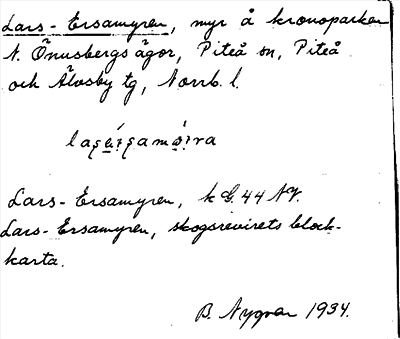 Lars-Ersamyren, myr å kronoparken
N. Önusbergs ägor, Piteå sn, Piteå
och Älvsby tg, Norrb. l.
Lars-Ersamyren, k G. 44 NV.
Lars-Ersamyren, skogsrevirets block-
karta.
B. Nygren 1934.